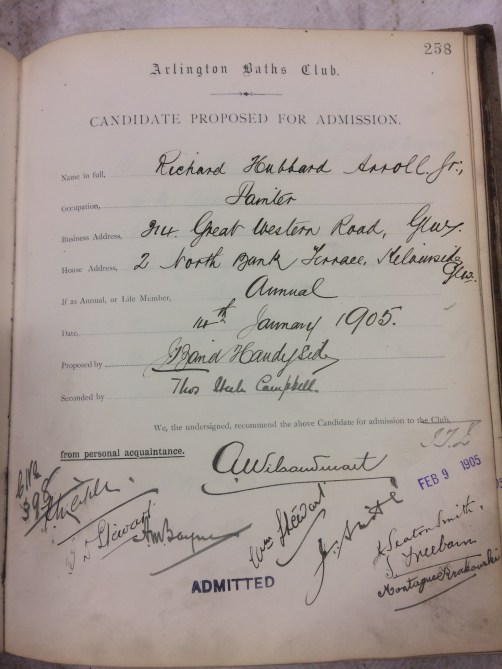 258
Arlington Baths Club.
CANDIDATE PROPOSED FOR ADMISSION.
Name in full, Richard Hubbard Arroll. Jr.,
Occupation, Painter
Business Address, 314. Great Western Road, Glw.
House Address, 2 North Bank Terrace, Kelvinside Glw.
If as Annual, or Life Member, Annual
Date, 14th January 1905.
Proposed by Handyside
Seconded by Thos Campbell.
We, the undersigned, recommend the above Candidate for admission to the Club,
from personal acquaintance.
FEB 9 1905
Stewart
Wm Stewart
A M Bayne
J. Seaton Smith.
S. Freebairn
Montague Krakowski
ADMITTED